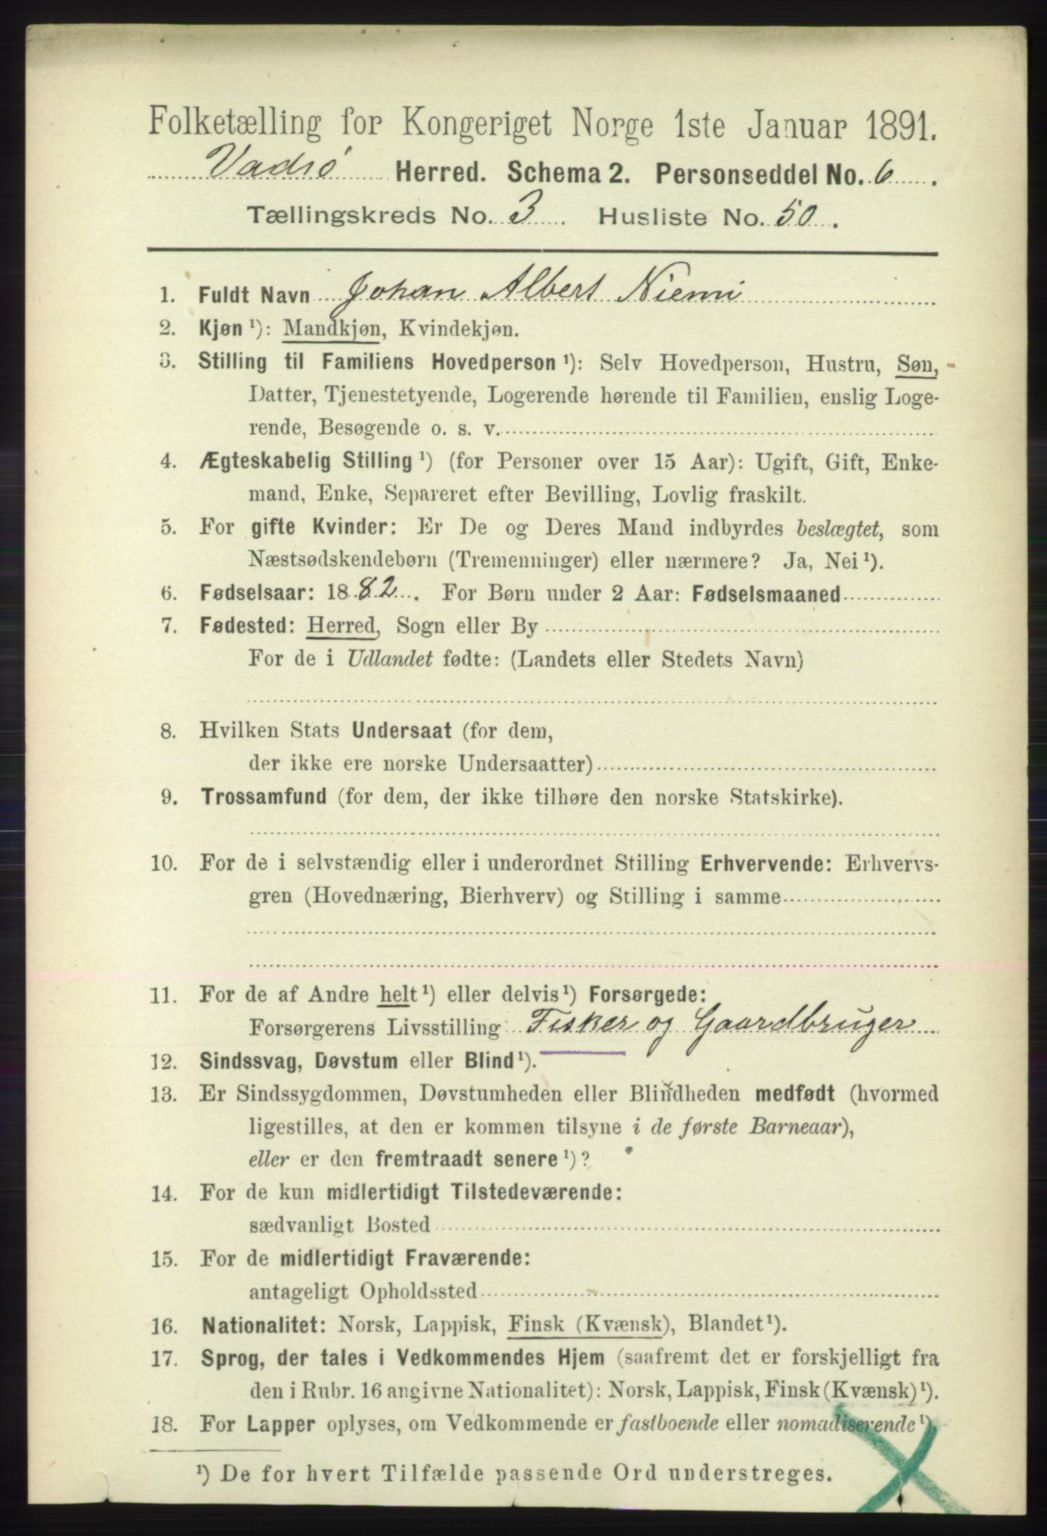 Folketælling for Kongeriget Norge 1ste Januar 1891.
Vadsø Herred. Schema 2. Personseddel No. 6.
Tællingskreds No. 3. Husliste No. 50.
1. Fuldt Navn Johan Albert Niemi
2. Kjøn ¹): Mandkjøn, Kvindekjøn.
3. Stilling til Familiens Hovedperson ¹): Selv Hovedperson, Hustru, Søn,
Datter, Tjenestetyende, Logerende hørende til Familien, enslig Loge-
rende, Besøgende o. s. v.
4. Ægteskabelig Stilling ¹) (for Personer over 15 Aar): Ugift, Gift, Enke-
mand, Enke, Separeret efter Bevilling, Lovlig fraskilt.
5. For gifte Kvinder: Er De og Deres Mand indbyrdes beslægtet, som
Næstsødskendebørn (Tremenninger) eller nærmere? Ja, Nei ¹).
6. Fødselsaar: 1882. For Børn under 2 Aar: Fødselsmaaned
7. Fødested: Herred, Sogn eller By
For de i Udlandet fødte: (Landets eller Stedets Navn)
8. Hvilken Stats Undersaat (for dem,
der ikke ere norske Undersaatter)
9. Trossamfund (for dem, der ikke tilhøre den norske Statskirke).
10. For de i selvstændig eller i underordnet Stilling Erhvervende: Erhvervs-
gren (Hovednæring, Bierhverv) og Stilling i samme
11. For de af Andre helt ¹) eller delvis ¹) Forsørgede:
Forsørgerens Livsstilling Fisker og Gaardbruger
12. Sindssvag, Døvstum eller Blind ¹).
13. Er Sindssygdommen, Døvstumheden eller Blindheden medfødt (hvormed
ligestilles, at den er kommen tilsyne i de første Barneaar),
eller er den fremtraadt senere ¹)?
14. For de kun midlertidigt Tilstedeværende:
sædvanligt Bosted
15. For de midlertidigt Fraværende:
antageligt Opholdssted
16. Nationalitet: Norsk, Lappisk, Finsk (Kvænsk), Blandet ¹).
17. Sprog, der tales i Vedkommendes Hjem (saafremt det er forskjelligt fra
den i Rubr. 16 angivne Nationalitet): Norsk, Lappisk, Finsk (Kvænsk) ¹).
18. For Lapper oplyses, om Vedkommende er fastboende eller nomadiserende ¹).
¹) De for hvert Tilfælde passende Ord understreges.